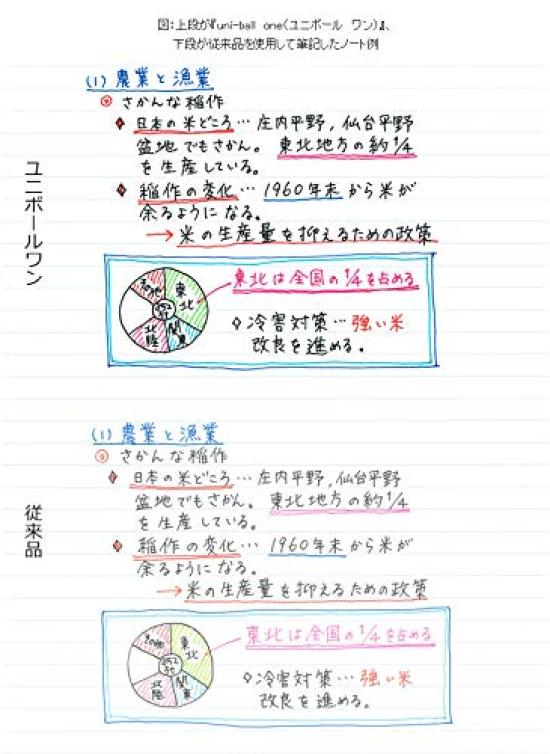 図：上段が『uni-ball one（ユニボール ワン）』、
下段が従来品を使用して筆記したノート例
ユニボールワン
(1) 農業と漁業
さかんな稲作
日本の米どころ… 庄内平野, 仙台平野
盆地でもさかん。 東北地方の約1/4
を生産している。
稲作の変化… 1960年末から米が
余るようになる。
→ 米の生産量を抑えるための政策
その他
東北
関東
北陸
東北は全国の1/4を占める
◇冷害対策…強い米
改良を進める。
従来品
(1) 農業と漁業
さかんな稲作
日本の米どころ… 庄内平野, 仙台平野
盆地でもさかん。 東北地方の約1/4
を生産している。
稲作の変化… 1960年末から米が
余るようになる。
→ 米の生産量を抑えるための政策
その他
東北
関東
北陸
東北は全国の1/4を占める
◇冷害対策…強い米
改良を進める。